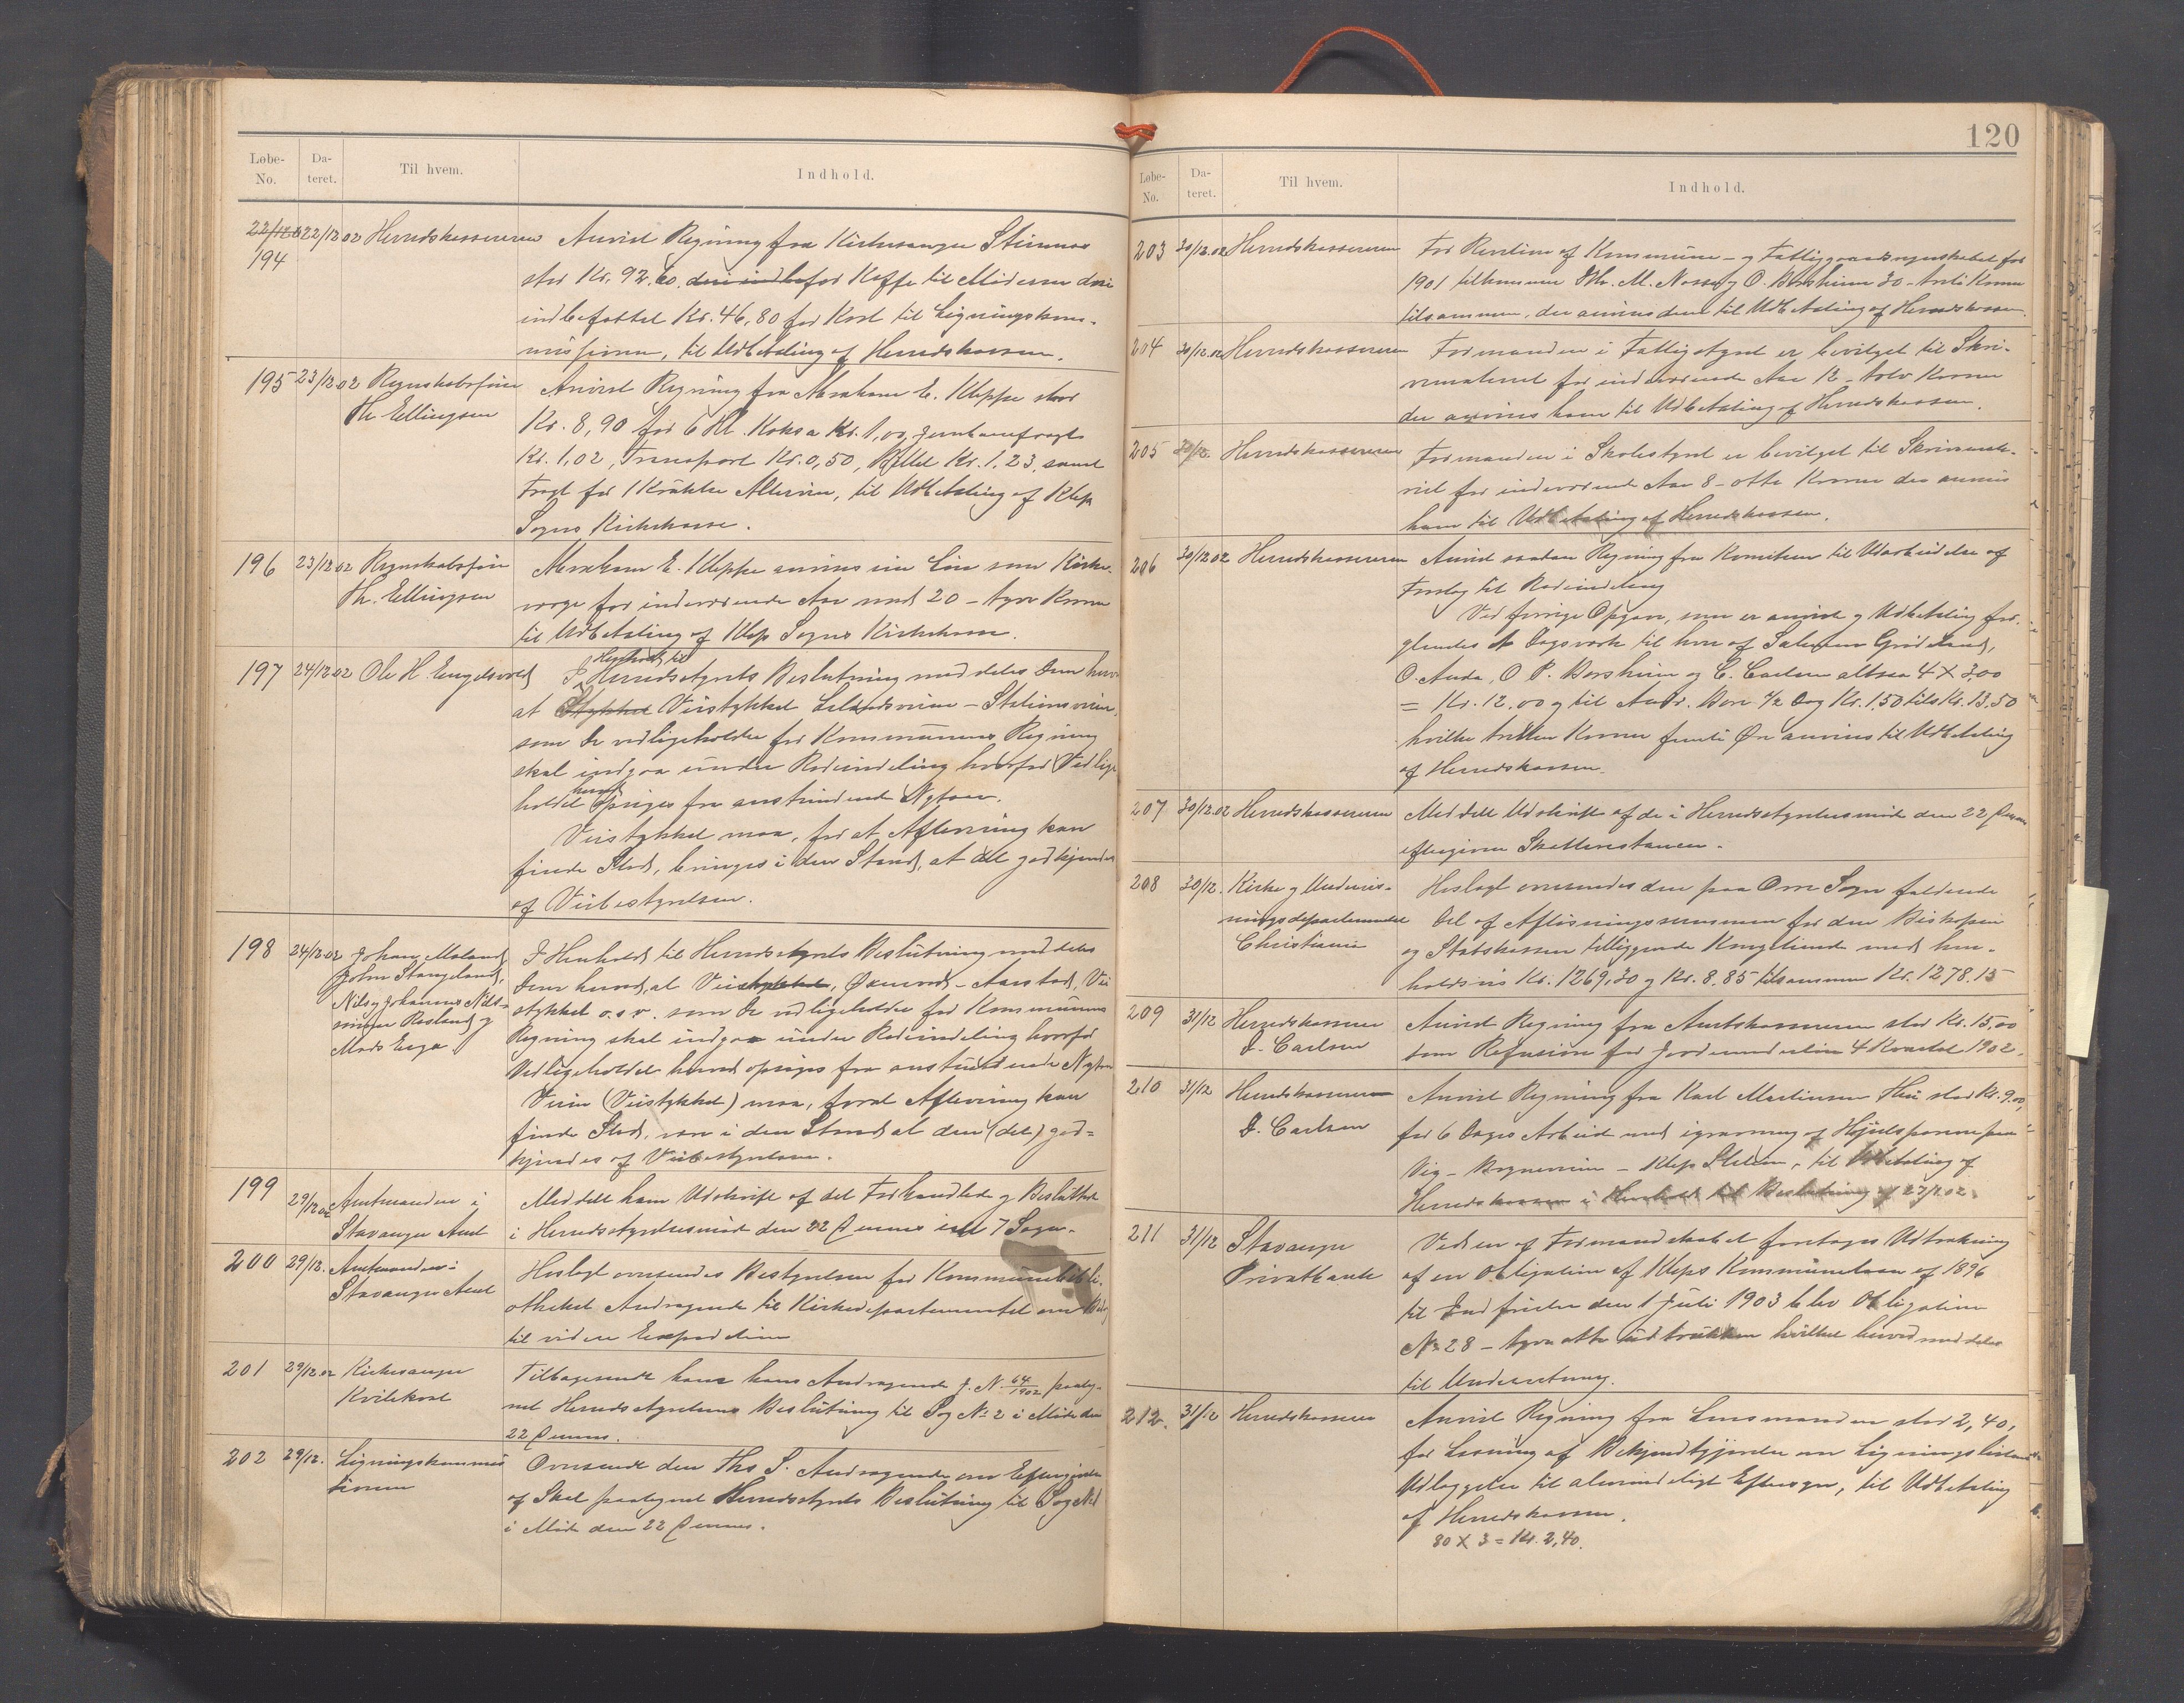 120
Løbe-No. Dateret. Til hvem. Indhold.
194 22/12 02 Herredskassereren Anvist Regning fra Kirkesanger Stennes
stor Kr. 92,60 for Kaffe til Møderne deri
indbefattet Kr. 46,80 for Kost til Ligningskom-
missionen, til Udbetaling af Herredskassen.
195 23/12 02 Regnskabsfører Anvist Regning fra Abraham E. Kleppe stor
Th. Ellingsen Kr. 8,90 for 6 Hl. Koks a Kr. 1,00, Jernbanefragt
Kr. 1,02, Transport Kr. 0,50, Billet Kr. 1,23, samt
Fragt for 1 Krukke Altervin, til Udbetaling af Klep
Sogns Kirkekasse.
196 23/12 02 Regnskabsfører Abraham E. Kleppe anvises sin Løn som Kirke-
Th. Ellingsen værge for indeværende Aar med 20 - tyve Kroner
til Udbetaling af Klep Sogns Kirkekasse.
197 24/12 02 Ole H. Engelsvold I Henhold til Herredsstyrets Beslutning meddeles Dem herved
at Veistykket - Stationsveien,
som De vedligeholder for Kommunens Regning
skal indgaa under Rodeindeling hvorfor Vedlige-
holdet herved opsiges fra anstundende Nytaar.
Veistykket maa, før at Aflevering kan
finde Sted, bringes i den Stand, at det godkjendes
af Veibestyrelsen.
198 24/12 02 Johan Meland, I Henhold til Herredsstyrets Beslutning meddeles
John Stangeland, Dem herved, at Veistykket, - Aarstad, Vei-
Nils og Johannes Niel- stykket o.s.v. som De vedligeholder for Kommunens
sønner Risland og Regning skal indgaa under Rodeindeling hvorfor
Mads Enge Vedligeholdet herved opsiges fra anstundende Nytaar
Veien (Veistykket) maa, forat Aflevering kan
finde Sted, være i den Stand at den (det) god-
kjendes af Veibestyrelsen.
199 29/12 02 Amtmanden i Meddelt ham Udskrift af det Forhandlede og Besluttede
Stavanger Amt i Herredsstyrelsesmøde den 22 dennes 7 Sager.
200 29/12. Amtmanden i Hoslagt oversendes Bestyrelsen for Kommunebibli-
Stavanger Amt othekets Andragende til Kirkedepartementet om Bidrag
til videre Expedition
201 29/12 02 Kirkesanger Tilbagesendt ham hans Andragende J. N. 64/1902 paateg-
net Herredsstyrelsens Beslutning til Sag No 2 i Møde den
22 dennes.
202 29/12. Ligningskommis- Oversendt den Ths S. Andragende om Eftergivelse
sionen af Skat paategnet Herredsstyrets Beslutning til Sag No 1
i Møde den 22 dennes.
Løbe-No. Dateret. Til hvem. Indhold.
203 30/12.02 Herredskassereren For Revision af Kommune- og Fattigregnskabet for
1901 tilkommer Th. M. Nesse og O. Borsheim 30 - tretti Kroner
tilsammen, der anvises dem til Udbetaling af Herredskassen.
204 30/12.02 Herredskassereren Formanden i Fattigstyret er bevilget til Skri-
vemateriel for indeværende Aar 12 - tolv Kroner
der anvises ham til Udbetaling af Herredskassen.
205 30/12. Herredskassereren Formanden i Skolestyret er bevilget til Skrivemate-
riel for indeværende Aar 8 - otte Kroner der anvises
ham til Udbetaling af Herredskassen.
206 30/12 02 Herredskassereren Anvist saadan Regning fra Komiteen til Udarbeidelse af
Forslag til Rodeindeling
Ved forrige Opgave, som er anvist og Udbetaling for-
glemtes Dagsværk til hver af Salomon Grødeland,
O. Anda, O. P. Borsheim og C. Carlsen altsaa 4 X 3,00
= Kr. 12.00 og til Andr. Bore 1/2 Dag Kr. 1,50 tils Kr. 13.50
hvilke tretten Kroner femti Øre anvises til Udbetaling
af Herredskassen.
207 30/12.02 Herredskassereren Meddelt Udskrift af de i Herredsstyrelsesmøde den 22 dennes
eftergivne Skatterestancer.
208 30/12. Kirke og Undervis- Hoslagt oversendes den paa Orre Sogn faldende
ningsdepartementet Del af Afløsningssummen for den Biskopen
Christiania og Statskassen tilliggende Kongetiende med hen-
holdsvis Kr. 1269,30 og Kr. 8,85 tilsammen Kr. 1278.15
209 31/12 Herredskasserer Anvist Regning fra Amtskassereren stor Kr. 15,00
D. Carlsen som Refusion for Jordemoderløn 4 Kvartal 1902.
210 31/12 Herredskasserer Anvist Regning fra Karl Martinsen Hui stor Kr. 9.00,
D. Carlsen for 6 Dages Arbeide med igravning af Hjulsporene paa
Vig - - Klep Station, til Udbetaling af
Herredskassen i Henhold til Beslutning af
211 31/12 Stavanger Ved en af Formandskabet foretagen Udtrækning
Privatbank af en Obligation af Kleps Kommunelaan af 1896
til Indfrielse den 1 Juli 1903 blev Obligation
No 28 - tyve otte udtrukken hvilket herved meddeles
til Underretning.
212. 31/12 Herredskasserer Anvist Regning fra Lensmanden stor 2,40,
for Læsning af Bekjendtgjørelse om Ligningslistens
Udlæggelse til almindeligt Eftersyn, til Udbetaling
af Herredskassen.
80 X 3 = Kr. 2,40.